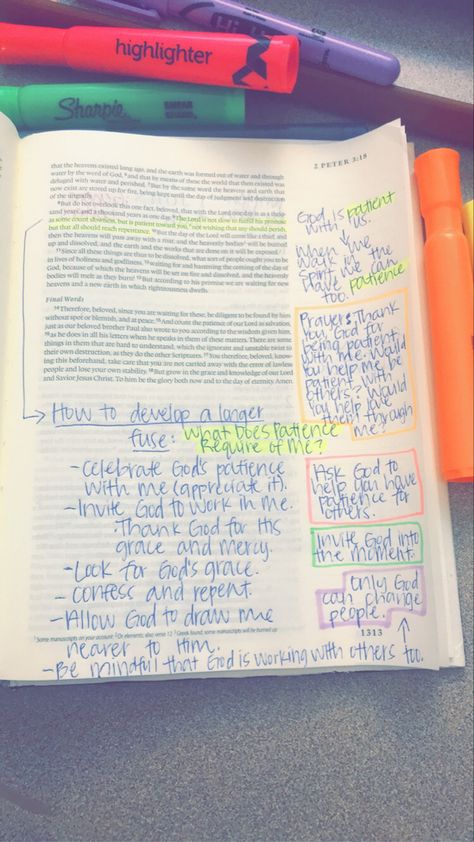 highlighter
Sharpie
2 PETER 3:18
that the heavens existed long ago, and the earth was formed out of water and through
water by the word of God, ⁶and that by means of these the world that then existed was
deluged with water and perished. ⁷But by the same word the heavens and earth that
now exist are stored up for fire, being kept until the day of judgment and destruction
of the ungodly.
⁸But do not overlook this one fact, beloved, that with the Lord one day is as a thou-
sand years, and a thousand years as one day. ⁹The Lord is not slow to fulfill his promise
as some count slowness, but is patient toward you, not wishing that any should perish,
but that all should reach repentance. ¹⁰But the day of the Lord will come like a thief, and
then the heavens will pass away with a roar, and the heavenly bodies will be burned
up and dissolved, and the earth and the works that are done on it will be exposed.
¹¹Since all these things are thus to be dissolved, what sort of people ought you to be
in lives of holiness and godliness, ¹²waiting for and hastening the coming of the day of
God, because of which the heavens will be set on fire and dissolved, and the heavenly
bodies will melt as they burn! ¹³But according to his promise we are waiting for new
heavens and a new earth in which righteousness dwells.
Final Words
¹⁴Therefore, beloved, since you are waiting for these, be diligent to be found by him
without spot or blemish, and at peace. ¹⁵And count the patience of our Lord as salvation,
just as our beloved brother Paul also wrote to you according to the wisdom given him,
¹⁶as he does in all his letters when he speaks in them of these matters. There are some
things in them that are hard to understand, which the ignorant and unstable twist to
their own destruction, as they do the other Scriptures. ¹⁷You therefore, beloved, know-
ing this beforehand, take care that you are not carried away with the error of lawless
people and lose your own stability. ¹⁸But grow in the grace and knowledge of our Lord
and Savior Jesus Christ. To him be the glory both now and to the day of eternity. Amen.
How to develop a longer
fuse: What Does Patience
Require of Me?
-Celebrate God's patience
with me (appreciate it).
-Invite God to work in me.
·Thank God for His
grace and mercy.
-Look for God's grace.
- Confess and repent.
-Allow God to draw me
nearer to Him.
-Be mindful that God is working with others too.
God is patient
with us.
When we
walk in the
Spirit, we can
have patience
too.
Prayer: Thank
you, God for
being patient
with me. Would
you help me be
patient with
others? Would
you help love
them through
me?
Ask God to
help you have
patience for
others.
Invite God into
the moment.
Only God
can change
people.
1313